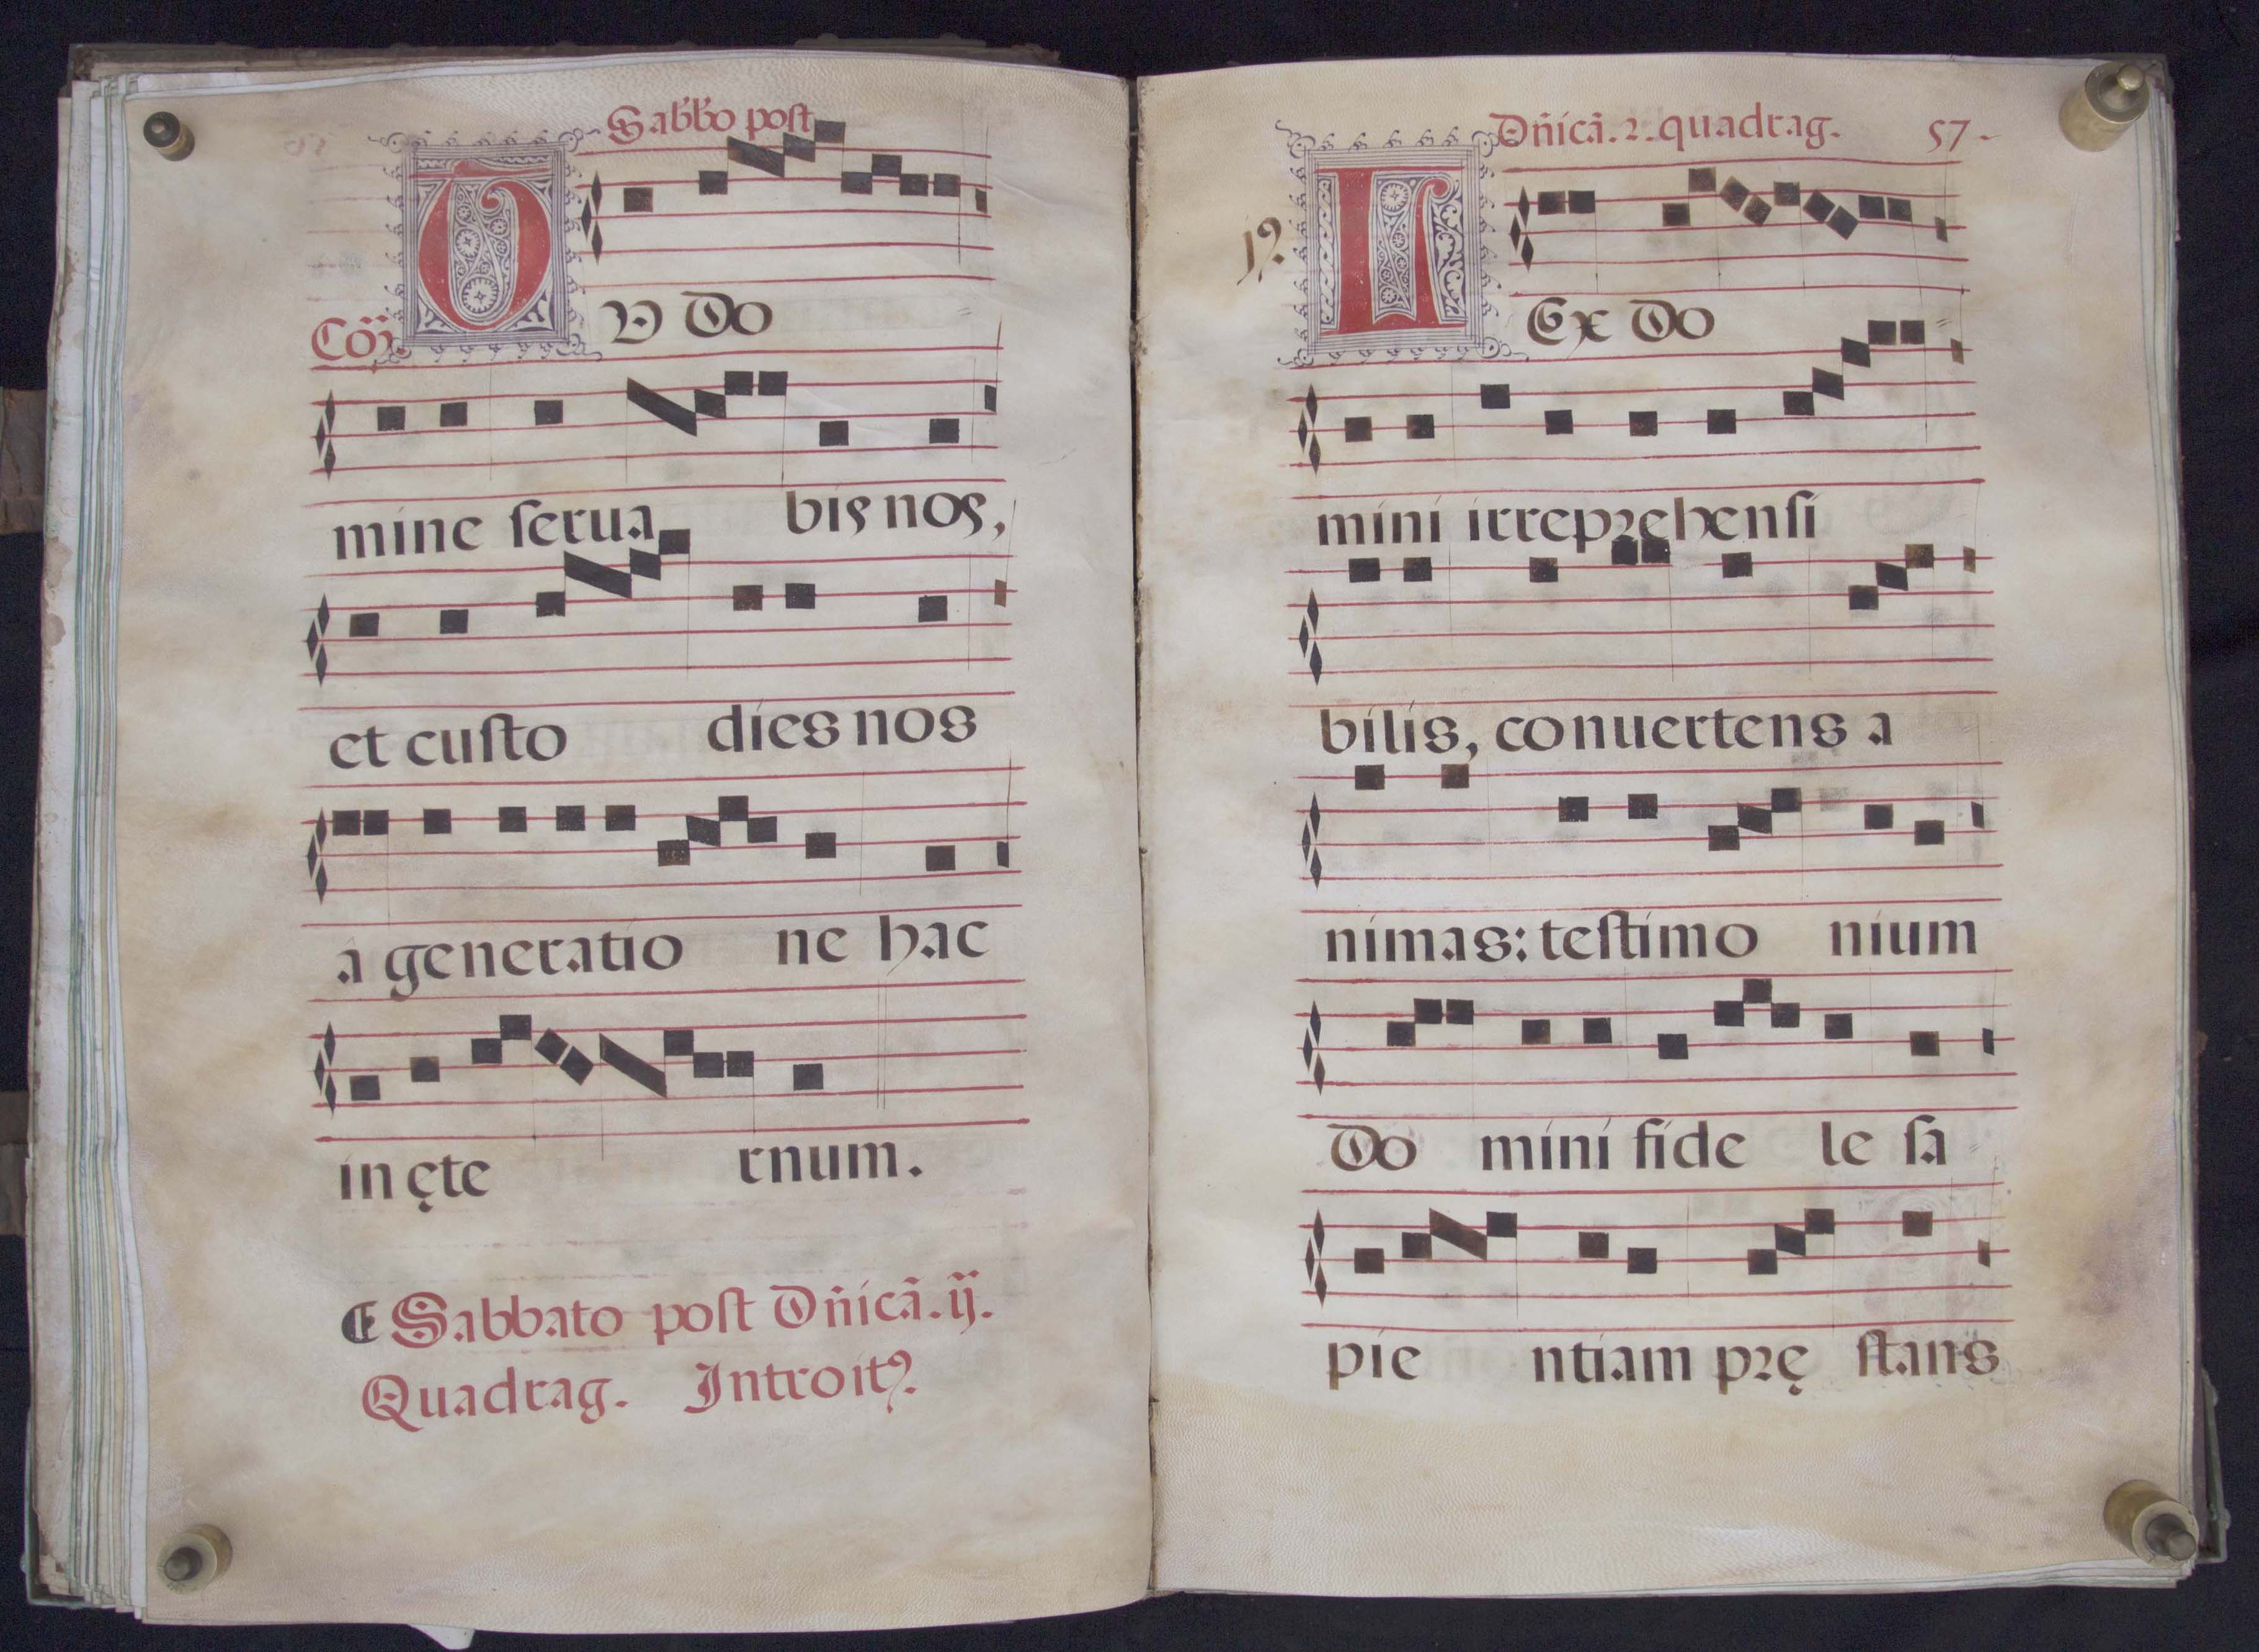 Sabb̄o post
Coῑ TU Do
mine ſerua bis nos,
et cuſto dies nos
a generatio ne hac
in ęte rnum.
Sabbato poſt Dn̄icā. ij.
Quadrag. Introitꝰ.
Dn̄icā. 2. quadrag. 57.
LEx Do
mini irreprehenſi
bilis, conuertens a
nimas: teſtimo nium
Do mini fide le ſa
pie ntiam prę ſtans